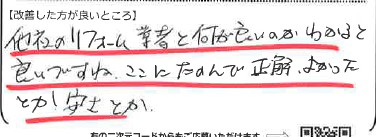 【改善した方が良いところ】
他社のリフォーム業者と何が良いのかわかると
良いですね。ここにたのんで正解、よかった
とか安さとか。
右の二次元コードからもご応募いただけます